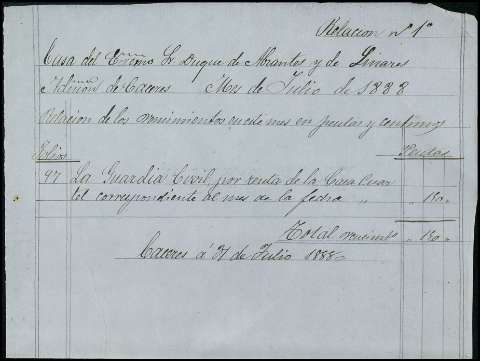 Relacion nº 1º
Casa del Excmo Sr Duque de Abrantes y de Linares
Admon de Caceres Mes de Julio de 1888
Relacion de los en este mes en pesetas y centimos
Folios Pesetas
97 La Guardia Civil por renta de la Casa Cuar
tel correspondiente al mes de la fecha " " 130 "
Total " 130 "
Caceres á 31 de Julio 1888